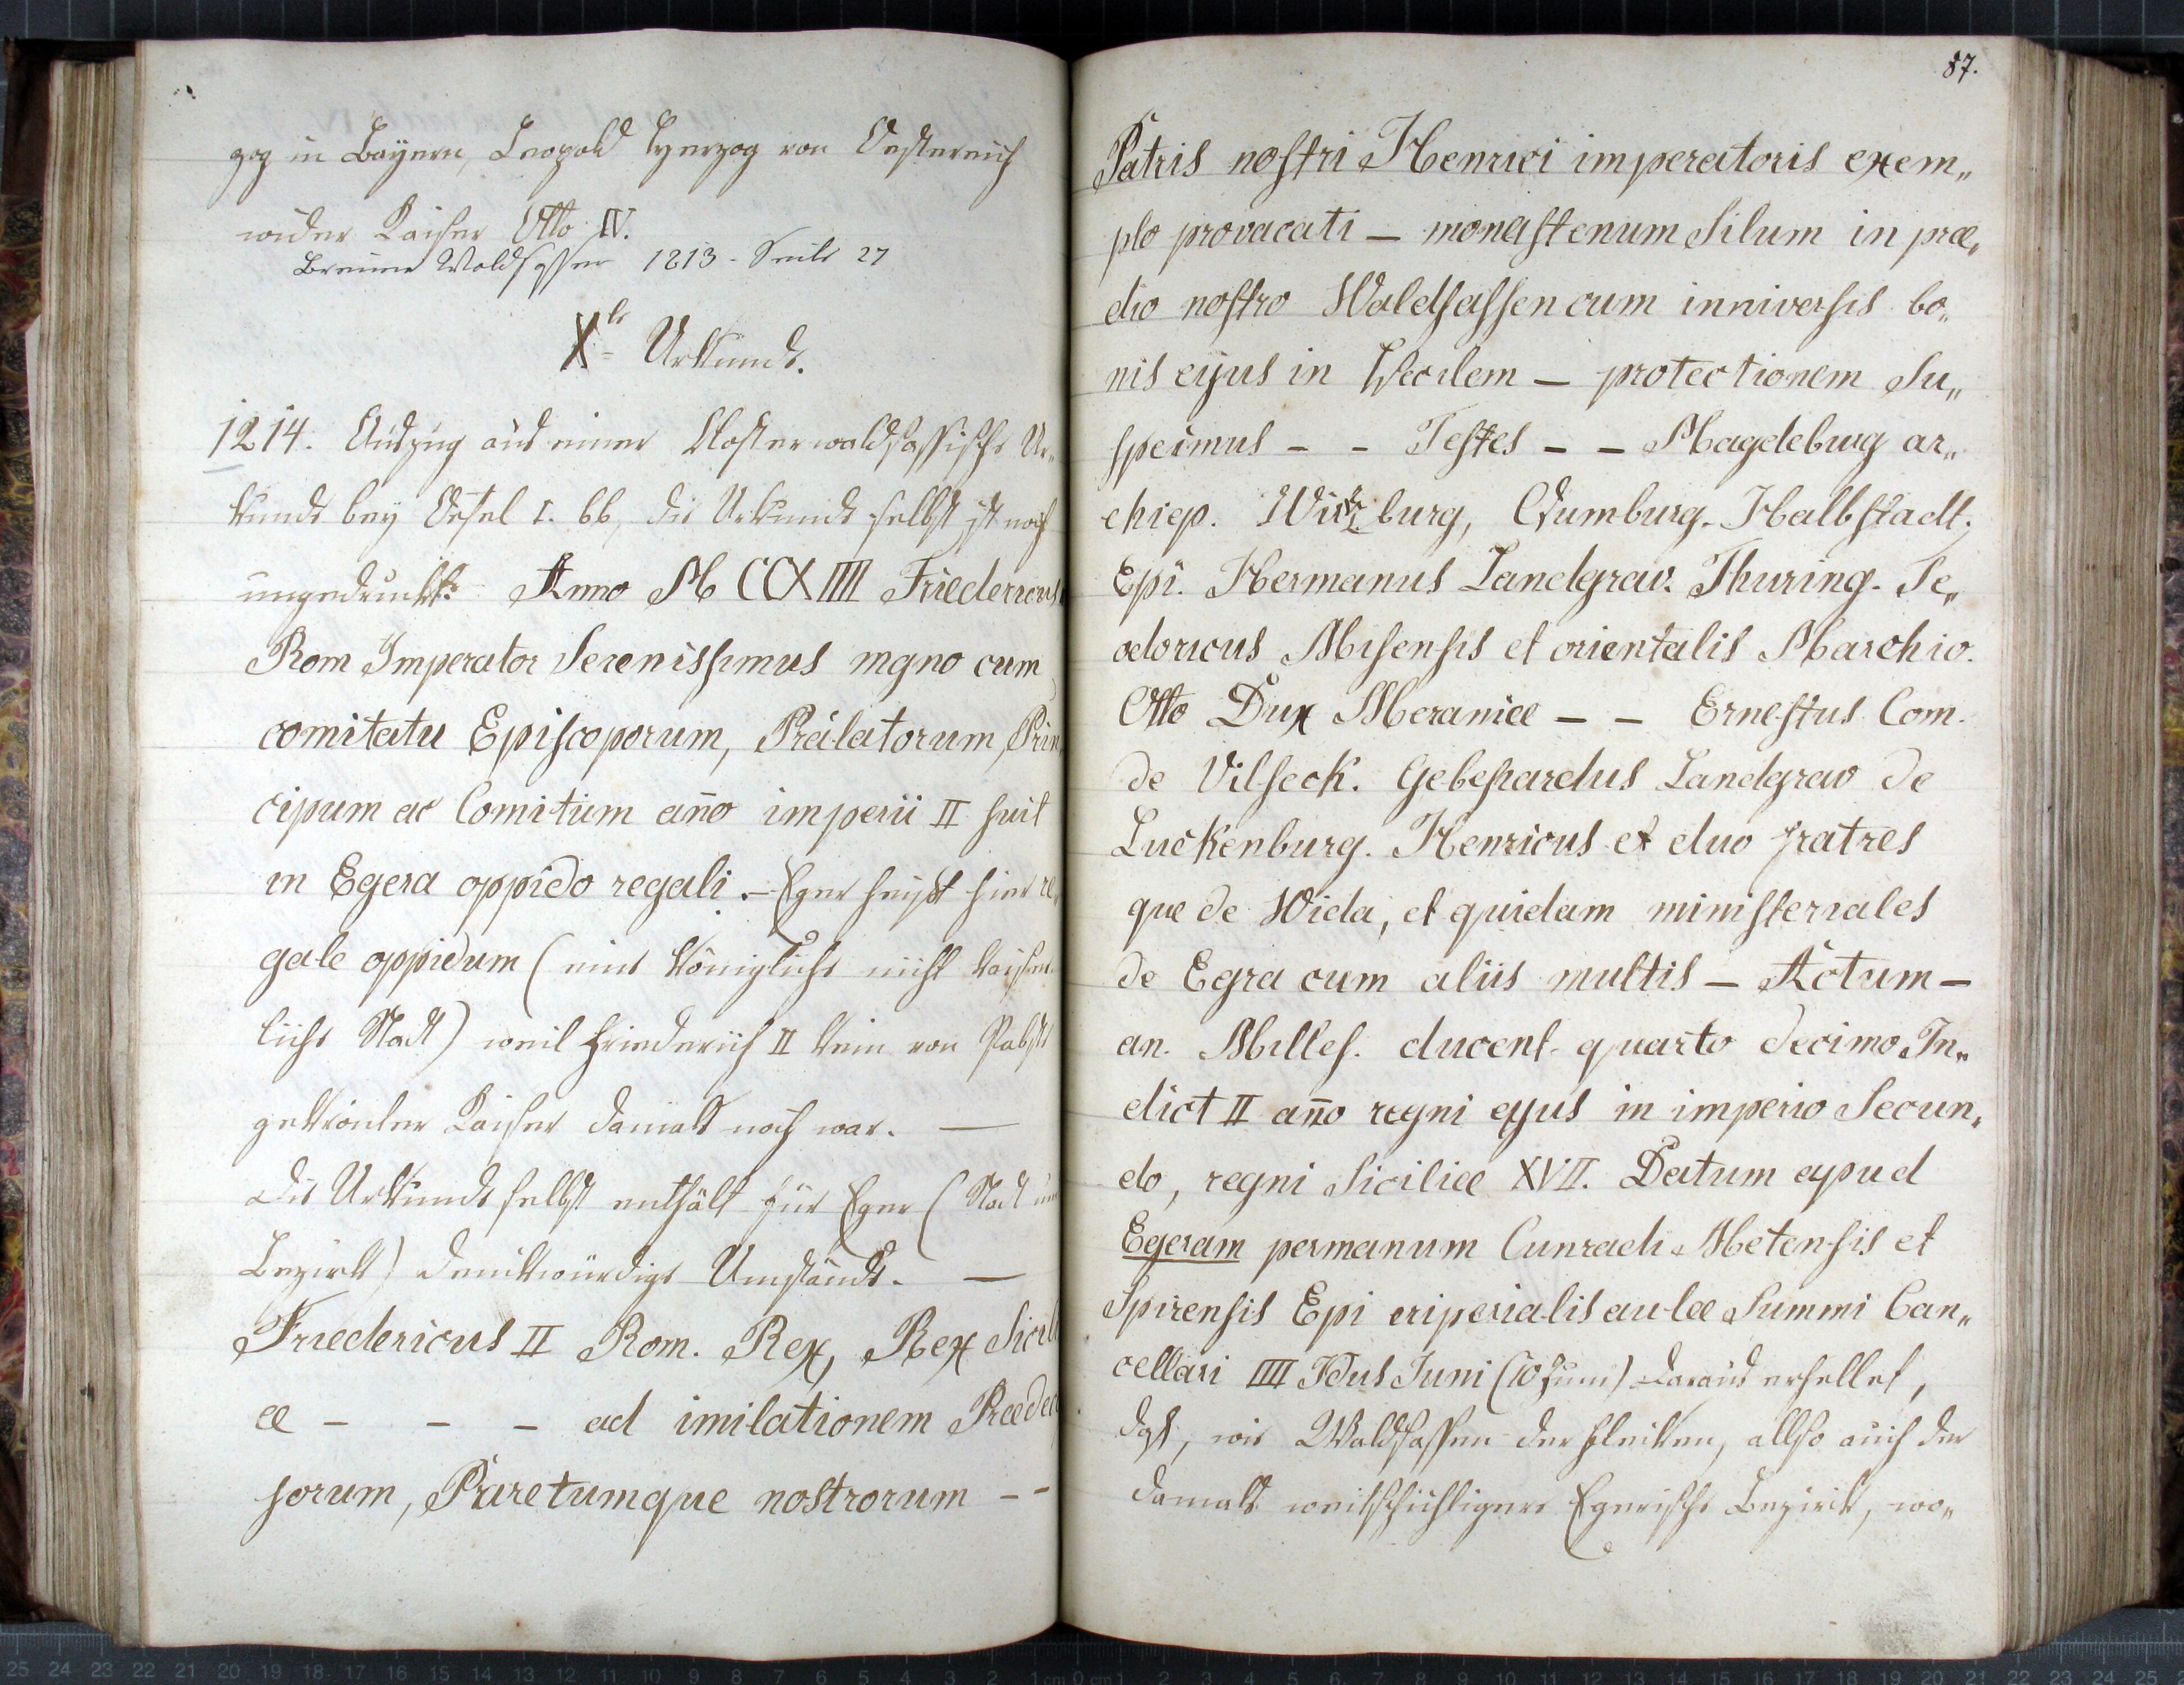 zog in Bayern, Leopold Herzog von Oestereich
wider Kaiser Otto IV.
Brenner Waldsassen 1213 - Seite 27
Xte Urkunde.
1214. Auszug aus einer Klosterwaldsassische Ur„
kunde bey Oefel I. 66, die Urkunde selbst ist noch
ungedruckt: Anno M CCXIIII Friedericus
Rom Imperator Serenissimus mgno cum
comitatu Episcoporum, Prälatorum, Prin
cipum ac Comitum año imperii II fuit
in Egera oppido regali. – Eger heißt hier re„
gale oppidum (eine königliche nicht kaiser„
liche Stadt) weil Friederich II kein von Pabste
gekrönter Kaiser damals noch war. —
Die Urkunde selbst enthält für Eger (Stadt und
Bezirk) denkwürdige Umstände. —
Friedericus II Rom. Rex, Rex Sicili
æ – – – ad imilationem Præde
sorum, Pæretumque nostrorum – –
87.
Patris nostri Henrici imperatoris exem„
plo provacati – monastenum Silum in præ„
dio nostro Waldsassen cum inniversis bo„
nis ejus in protectionem Su„
speimus – – Testes – – Magdeburg ar„
chiep. Wirzburg, Halbstadt.
Epi. Hermanus Landgrav. Thuring. Te„
odoricus Misensis et orientalis Marchio.
Otto Dux Meraniæ – – Ernestus Com.
de Vilseck. Gebehardus Landgrav de
Luckenburg. Henricus et duo fratres
que de Wida, et quidam ministeriales
de Egra cum aliis multis – Actum –
an. Milles. ducent. quarto decimo In„
dict II año regni ejus in imperio Secun„
do, regni Siciliæ XVII. Datum apud
Egeram permanum Cunradi Metensis et
Spirensis Epi eriperialis aulæ Summi Can„
cellari IIII Idus Juni (10 Juni) daraus erhellet,
daß, wie Waldsassen der Flecken, allso auch der
damals weitschichtigere Egerische Bezirk, wo„